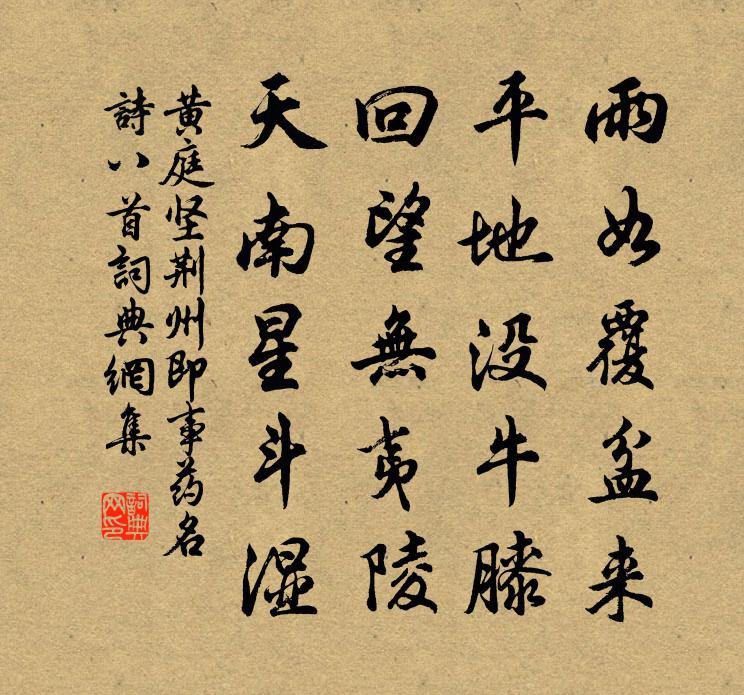 雨如覆盆来
平地没牛膝
回望無夷陵
天南星斗湿
黄庭坚荆州即事药名
詩八首詞典網集
詞典
网印